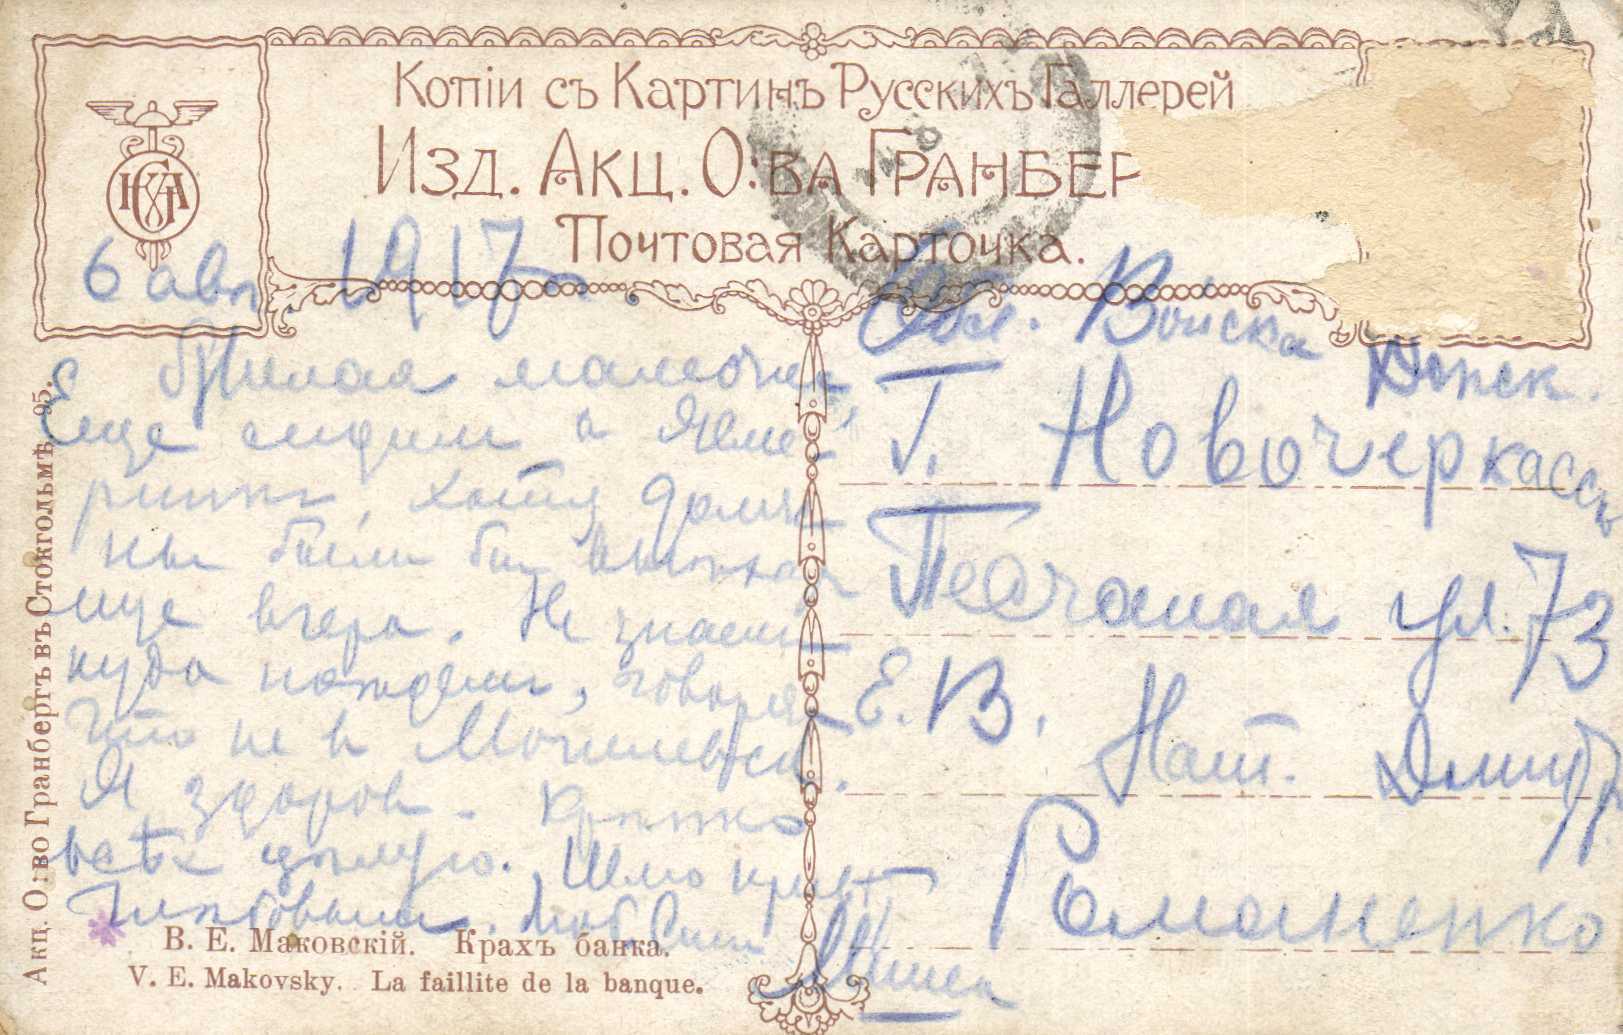 Копіи съ Картинъ Русскихъ Галлерей
Изд. Акц. О:ва Гранбер
Почтовая Карточка.
6 авг. 1917
Милая мамочка,
Еще сидим в Жме-
ринке, хотя должны
ны были бы
еще вчера. Не знаем
куда поедем, говорят
что не в Могилевск.
Я здоров. Крепко
всѣх цѣлую. Шлю привет
Люб. Сын
Миша
Обл. Войска Донск.
Г. Новочеркасск
Песчаная ул. 73
Е. В. Нат. Дмитр.
Романенко
В. Е. Маковскій. Крахъ банка.
V. E. Makovsky. La faillite de la banque.
Акц. О:во Гранбергъ въ Стокгольмѣ 95.